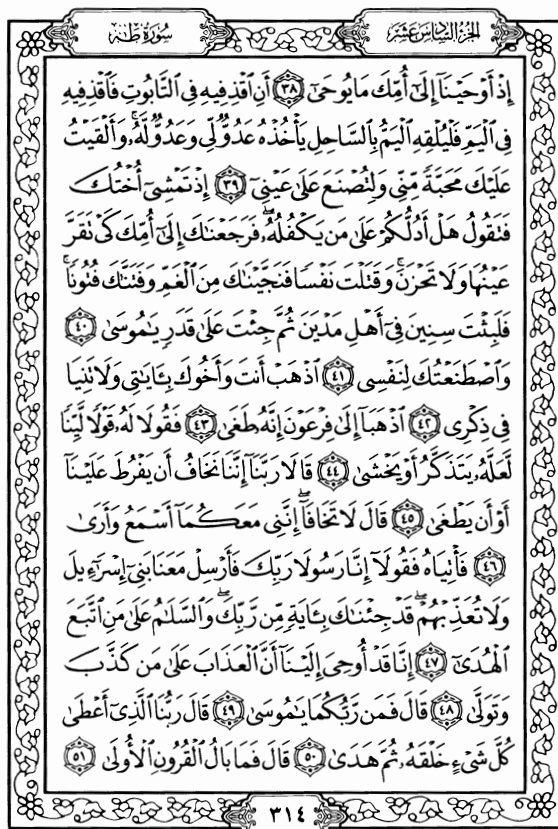 الجزء السادس عشر
سورة طه
إِذْ أَوْحَيْنَآ إِلَىٰٓ أُمِّكَ مَا يُوحَىٰٓ ۝٣٨ أَنِ ٱقْذِفِيهِ فِى ٱلتَّابُوتِ فَٱقْذِفِيهِ
فِى ٱلْيَمِّ فَلْيُلْقِهِ ٱلْيَمُّ بِٱلسَّاحِلِ يَأْخُذْهُ عَدُوٌّ لِّى وَعَدُوٌّ لَّهُۥ ۚ وَأَلْقَيْتُ
عَلَيْكَ مَحَبَّةً مِّنِّى وَلِتُصْنَعَ عَلَىٰ عَيْنِىٓ ۝٣٩ إِذْ تَمْشِىٓ أُخْتُكَ
فَتَقُولُ هَلْ أَدُلُّكُمْ عَلَىٰ مَن يَكْفُلُهُۥ ۖ فَرَجَعْنَٰكَ إِلَىٰٓ أُمِّكَ كَىْ تَقَرَّ
عَيْنُهَا وَلَا تَحْزَنَ ۚ وَقَتَلْتَ نَفْسًا فَنَجَّيْنَٰكَ مِنَ ٱلْغَمِّ وَفَتَنَّٰكَ فُتُونًا ۚ
فَلَبِثْتَ سِنِينَ فِىٓ أَهْلِ مَدْيَنَ ثُمَّ جِئْتَ عَلَىٰ قَدَرٍ يَٰمُوسَىٰ ۝٤٠
وَٱصْطَنَعْتُكَ لِنَفْسِى ۝٤١ ٱذْهَبْ أَنتَ وَأَخُوكَ بِـَٔايَٰتِى وَلَا تَنِيَا
فِى ذِكْرِى ۝٤٢ ٱذْهَبَآ إِلَىٰ فِرْعَوْنَ إِنَّهُۥ طَغَىٰ ۝٤٣ فَقُولَا لَهُۥ قَوْلًا لَّيِّنًا
لَّعَلَّهُۥ يَتَذَكَّرُ أَوْ يَخْشَىٰ ۝٤٤ قَالَا رَبَّنَآ إِنَّنَا نَخَافُ أَن يَفْرُطَ عَلَيْنَآ
أَوْ أَن يَطْغَىٰ ۝٤٥ قَالَ لَا تَخَافَآ ۖ إِنَّنِى مَعَكُمَآ أَسْمَعُ وَأَرَىٰ
۝٤٦ فَأْتِيَاهُ فَقُولَآ إِنَّا رَسُولَا رَبِّكَ فَأَرْسِلْ مَعَنَا بَنِىٓ إِسْرَٰٓءِيلَ
وَلَا تُعَذِّبْهُمْ ۖ قَدْ جِئْنَٰكَ بِـَٔايَةٍ مِّن رَّبِّكَ ۖ وَٱلسَّلَٰمُ عَلَىٰ مَنِ ٱتَّبَعَ
ٱلْهُدَىٰٓ ۝٤٧ إِنَّا قَدْ أُوحِىَ إِلَيْنَآ أَنَّ ٱلْعَذَابَ عَلَىٰ مَن كَذَّبَ
وَتَوَلَّىٰ ۝٤٨ قَالَ فَمَن رَّبُّكُمَا يَٰمُوسَىٰ ۝٤٩ قَالَ رَبُّنَا ٱلَّذِىٓ أَعْطَىٰ
كُلَّ شَىْءٍ خَلْقَهُۥ ثُمَّ هَدَىٰ ۝٥٠ قَالَ فَمَا بَالُ ٱلْقُرُونِ ٱلْأُولَىٰ ۝٥١
٣١٤